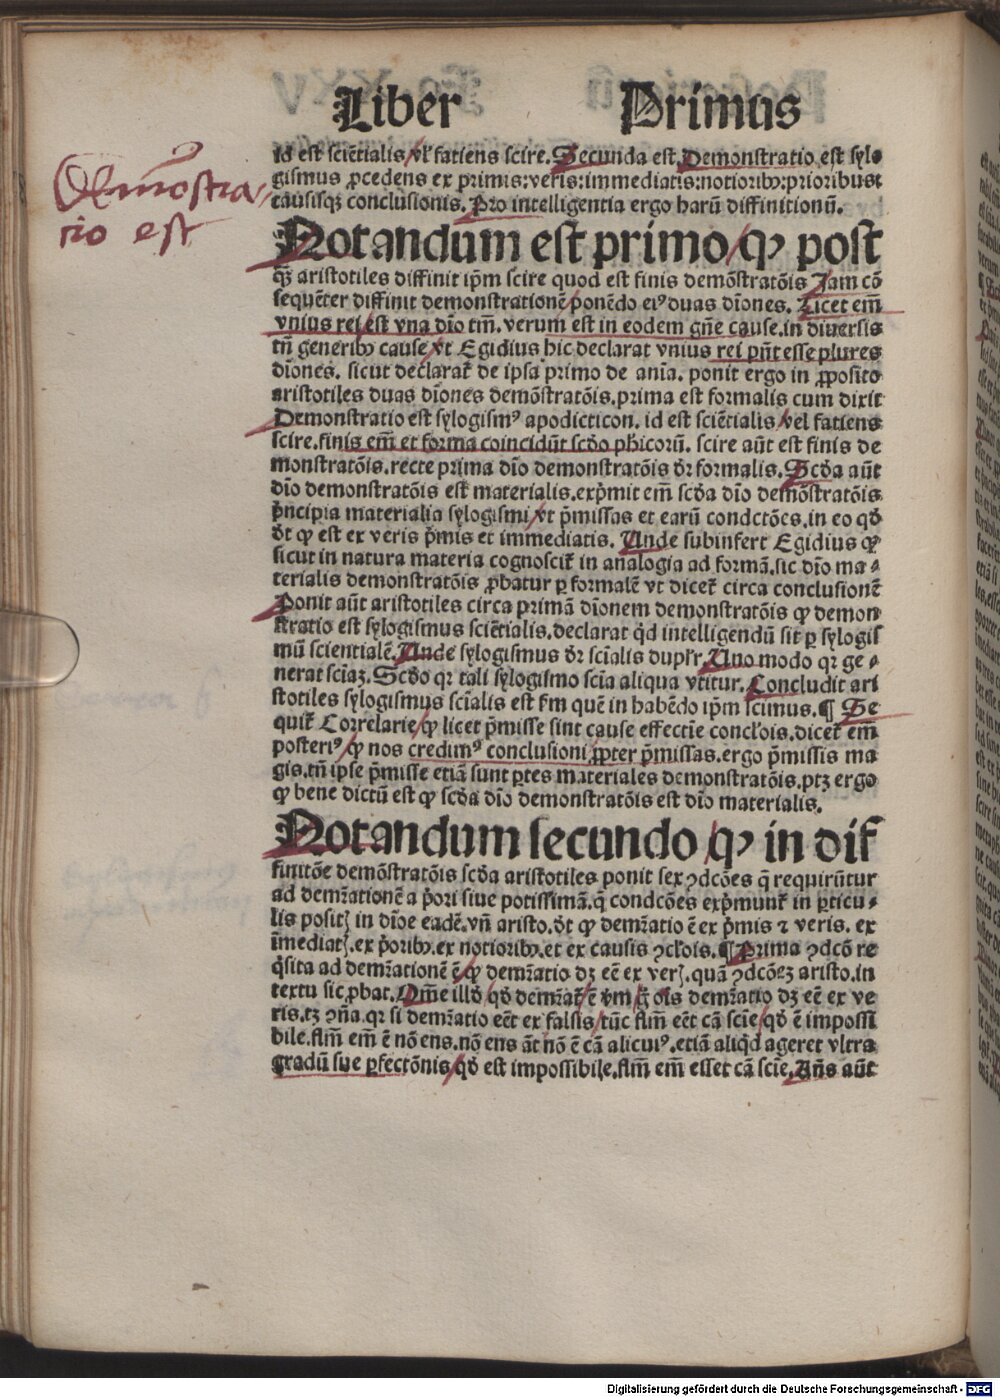 Liber Primus
Demōstra-
tio est
id est sciētialis/vl’ faciens scire. Secunda est. Demonstratio est sylo
gismus ꝓcedens ex primis:veris:immediatis:notioribꝰ:prioribusꝫ
causisqꝫ conclusionis. Pro intelligentia ergo harū diffinitionū.
Notandum est primo/ꝙ post
qꝫ aristotiles diffinit ip̄m scire quod est finis demōstratōis Jam cō
sequēter diffinit demonstrationē/ponēdo eiꝰ duas dīones. Licet em̄
vnius rei/est vna dīo tm̄. verum est in eodem gn̄e cause. in diuersis
tn̄ generibꝰ cause/vt Egidius hic declarat vnius rei pn̄t esse plures
dīones. sicut declarat̄ de ipsa primo de anīa. ponit ergo in ꝓposito
aristotiles duas dīones demōstratōis. prima est formalis cum dixit
Demonstratio est sylogismꝰ apodicticon. id est sciētialis/vel faciens
scire. finis em̄ et forma coincidūt scd̄o ph̄icorū. scire aūt est finis de
monstratōis. recte prima dīo demonstratōis dr̄ formalis. Scd̄a aūt
dīo demonstratōis est materialis. exp̄mit em̄ scd̄a dīo demōstratōis
p̄ncipia materialia sylogismi/vt p̄missas et earū condctōes. in eo qd̄
dt̄ ꝙ est ex veris p̄mis et immediatis. Unde subinfert Egidius ꝙ
sicut in natura materia cognoscit̄ in analogia ad formā. sic dīo ma-
terialis demonstratōis ꝓbatur ꝑ formalē vt dicet̄ circa conclusionē
Ponit aūt aristotiles circa primā dīonem demonstratōis ꝙ demon
stratio est sylogismus sciētialis. declarat qd̄ intelligendū sit ꝑ sylogis
mū scientialē. Unde sylogismus dr̄ scīalis duplr̄. Uno modo qr ge-
nerat scīaꝫ. Scd̄o qr tali sylogismo scīa aliqua vtitur. Concludit ari
stotiles sylogismus scīalis est fm quē in habēdo ip̄m scimus. ¶ Se
quit̄ Correlarie/ꝙ licet p̄misse sint cause effectiue concl’ois. dicet̄ em̄
posteriꝰ/ꝙ nos credimꝰ conclusioni ꝓpter p̄missas. ergo p̄missis ma
gis. tn̄ ipse p̄misse etiā sunt ꝑtes materiales demonstratōis. ptꝫ ergo
ꝙ bene dictū est ꝙ scd̄a dīo demonstratōis est dīo materialis.
Notandum secundo/ꝙ in dif
finitōe demōstratōis scd̄a aristotiles ponit sex ꝯdcōes q̄ requirūtur
ad demr̄ationē a p̄ori siue potissimā. q̄ condcōes exp̄munt̄ in ꝑticu-
lis positꝭ in dīoe eadē. vn̄ aristo. dt̄ ꝙ demr̄atio ē ex p̄mis ⁊ veris. ex
īmediatꝭ. ex p̄oribꝰ. ex notioribꝰ. et ex causis ꝯcl’ois. ¶ Prima ꝯdcō re
q̄sita ad demr̄ationē ē/ꝙ demr̄atio dꝫ eē ex verꝭ. quā ꝯdcōeꝫ aristo. in
textu sic ꝓbat. Om̄e illd̄/qd̄ demr̄at̄/ē v̄m/ḡ ois demr̄atio dꝫ eē ex ve
ris. tꝫ ꝯn̄a. qr si demr̄atio eēt ex falsis/tūc flm̄ eēt cā scīe/qd̄ ē impossi
bile. flm̄ em̄ ē nō ens. nō ens āt nō ē cā alicuiꝰ. etiā aliqd̄ ageret vltra
gradū sue ꝑfectōnis/qd̄ est impossibile. flm̄ em̄ esset cā scīe. Ans aūt
Digitalisierung gefördert durch die Deutsche Forschungsgemeinschaft - DFG